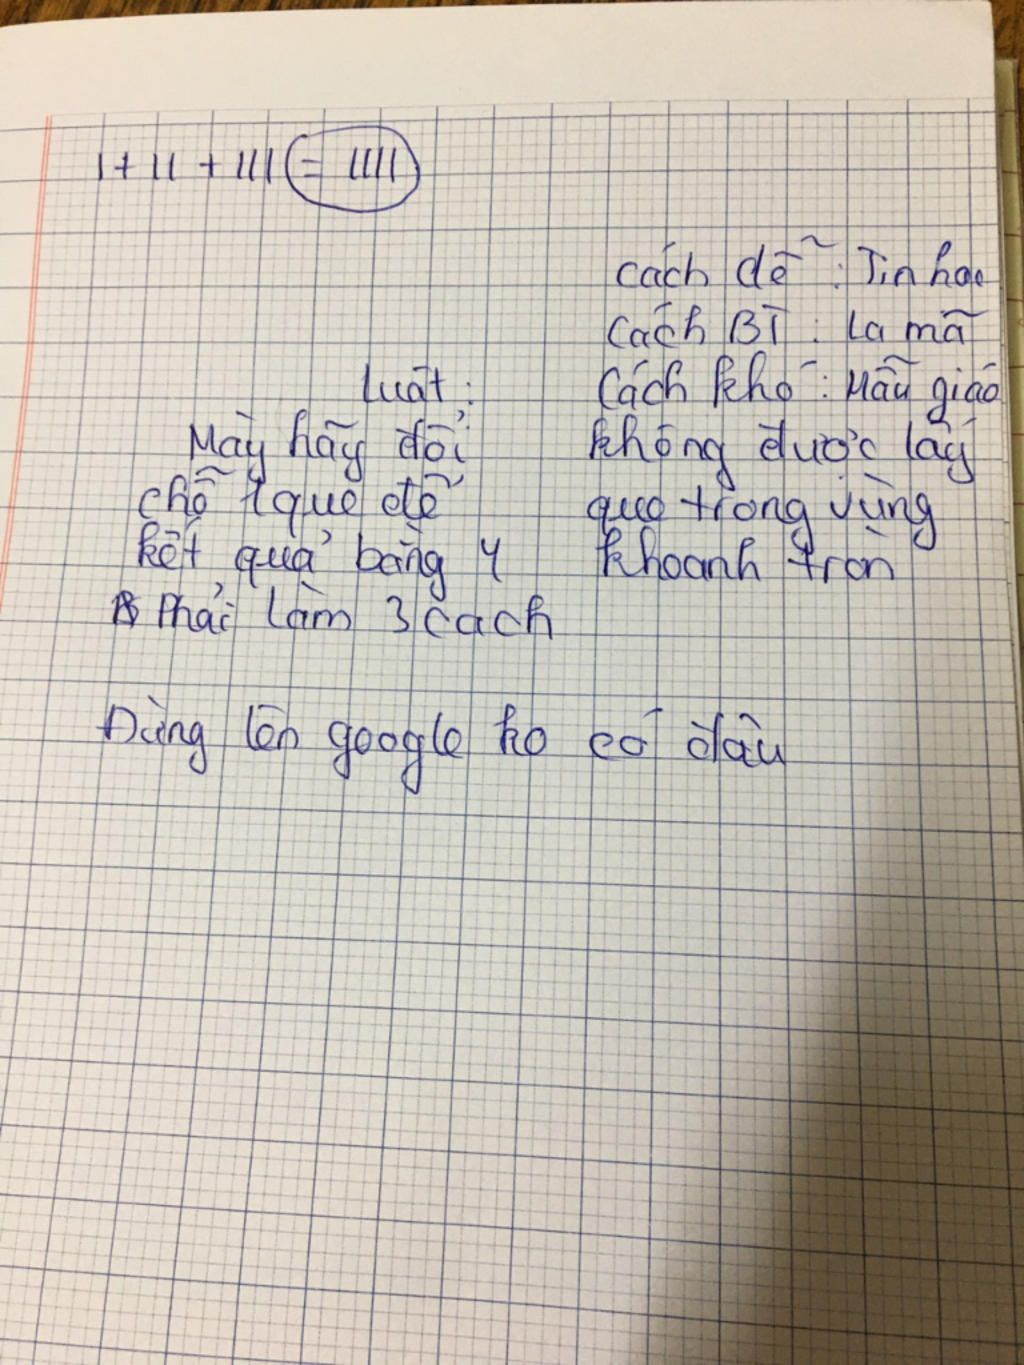 1 + 11 + 111 = 1111
Cách dễ : Tin học
Cách BT : La mã
Luật : Cách khó : Mẫu giáo
Mày hãy đổi không được lấy
chỗ 1 que để que trong vùng
kết quả bằng 4 khoanh tròn
Phải làm 3 cách
Đừng lên google ko có đâu